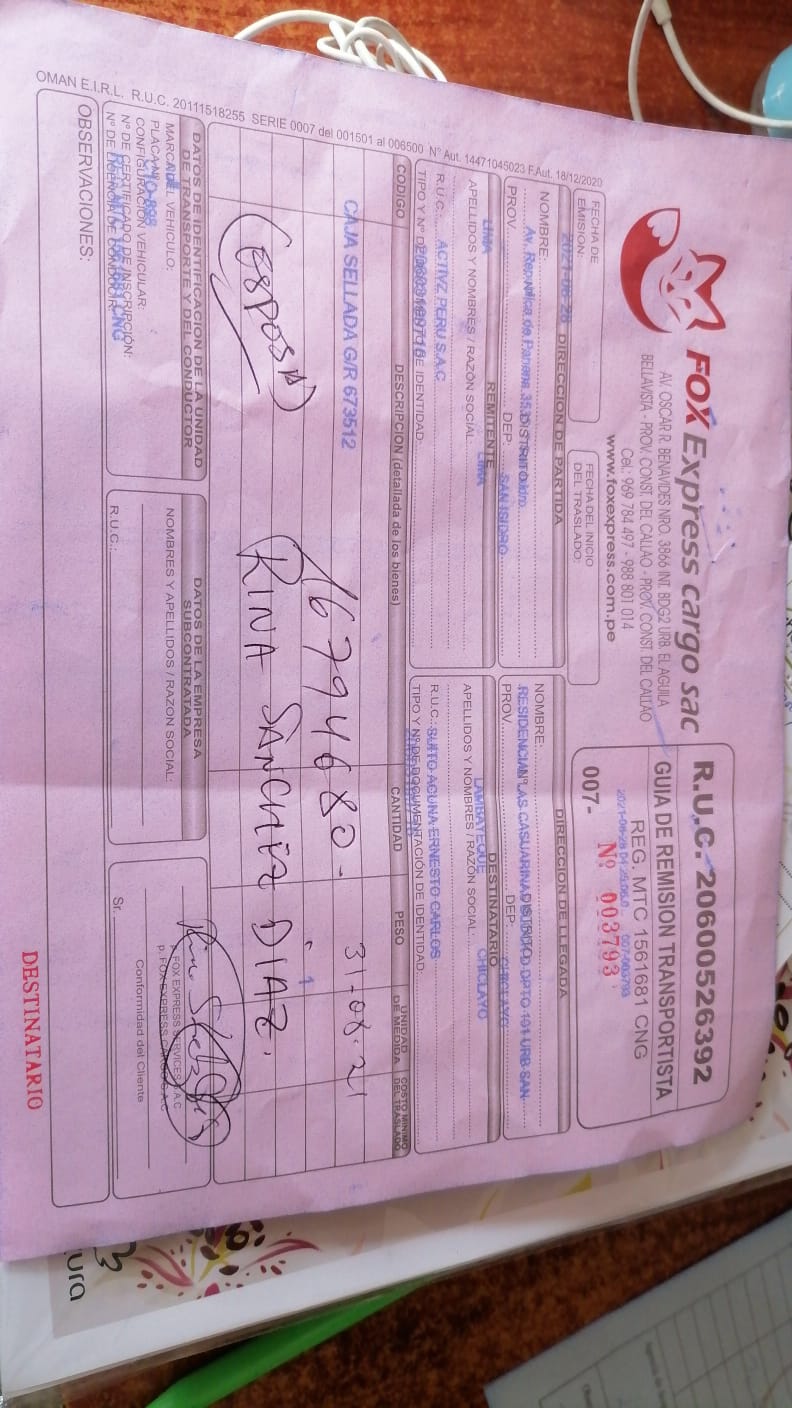 FOX Express cargo sac
AV. OSCAR R. BENAVIDES NRO. 3866 INT. BDG2 URB. EL AGUILA
BELLAVISTA - PROV. CONST. DEL CALLAO - PROV. CONST. DEL CALLAO
Cel.: 969 784 497 - 988 801 014
www.foxexpress.com.pe
R.U.C. 20600526392
GUIA DE REMISION TRANSPORTISTA
REG. MTC 1561681 CNG
007- Nº 003793
FECHA DE EMISIÓN:
FECHA DEL INICIO DEL TRASLADO:
DIRECCION DE PARTIDA
NOMBRE:
Av. República de Panama 353
DISTRITO
PROV.
DEP:
LIMA
SAN ISIDRO
DIRECCION DE LLEGADA
NOMBRE:
RESIDENCIAL LAS CASUARINAS
DPTO 101 URB SAN
PROV.
DEP:
LAMBAYEQUE
CHICLAYO
REMITENTE
APELLIDOS Y NOMBRES / RAZÓN SOCIAL:
LIMA
R.U.C.: ACTIVZ PERU S.A.C
TIPO Y Nº DE DOCUMENTACIÓN DE IDENTIDAD:
DESTINATARIO
APELLIDOS Y NOMBRES / RAZÓN SOCIAL:
CHICLAYO
R.U.C.: SUITO ACUNA ERNESTO CARLOS
TIPO Y Nº DE DOCUMENTACIÓN DE IDENTIDAD:
CODIGO
DESCRIPCION (detallada de los bienes)
CANTIDAD
PESO
UNIDAD DE MEDIDA
COSTO MINIMO DEL TRASLADO
CAJA SELLADA G/R 673512
31-08-21
16794680-
1
(esposa)
RINA SANCHEZ DIAZ.
DATOS DE IDENTIFICACION DE LA UNIDAD
DE TRANSPORTE Y DEL CONDUCTOR
MARCA DEL VEHICULO:
PLACA Nº
CONFIGURACIÓN VEHICULAR:
Nº DE CERTIFICADO DE INSCRIPCIÓN:
Nº DE LICENCIA DE CONDUCIR:
DATOS DE LA EMPRESA
SUBCONTRATADA
NOMBRES Y APELLIDOS / RAZON SOCIAL:
R.U.C.:
p. FOX EXPRESS CARGO S.A.C
Conformidad del Cliente
Sr.
OBSERVACIONES:
DESTINATARIO
OMAN E.I.R.L. R.U.C. 20111518255 SERIE 0007 del 001501 al 006500 Nº Aut. 14471045023 F.Aut. 18/12/2020